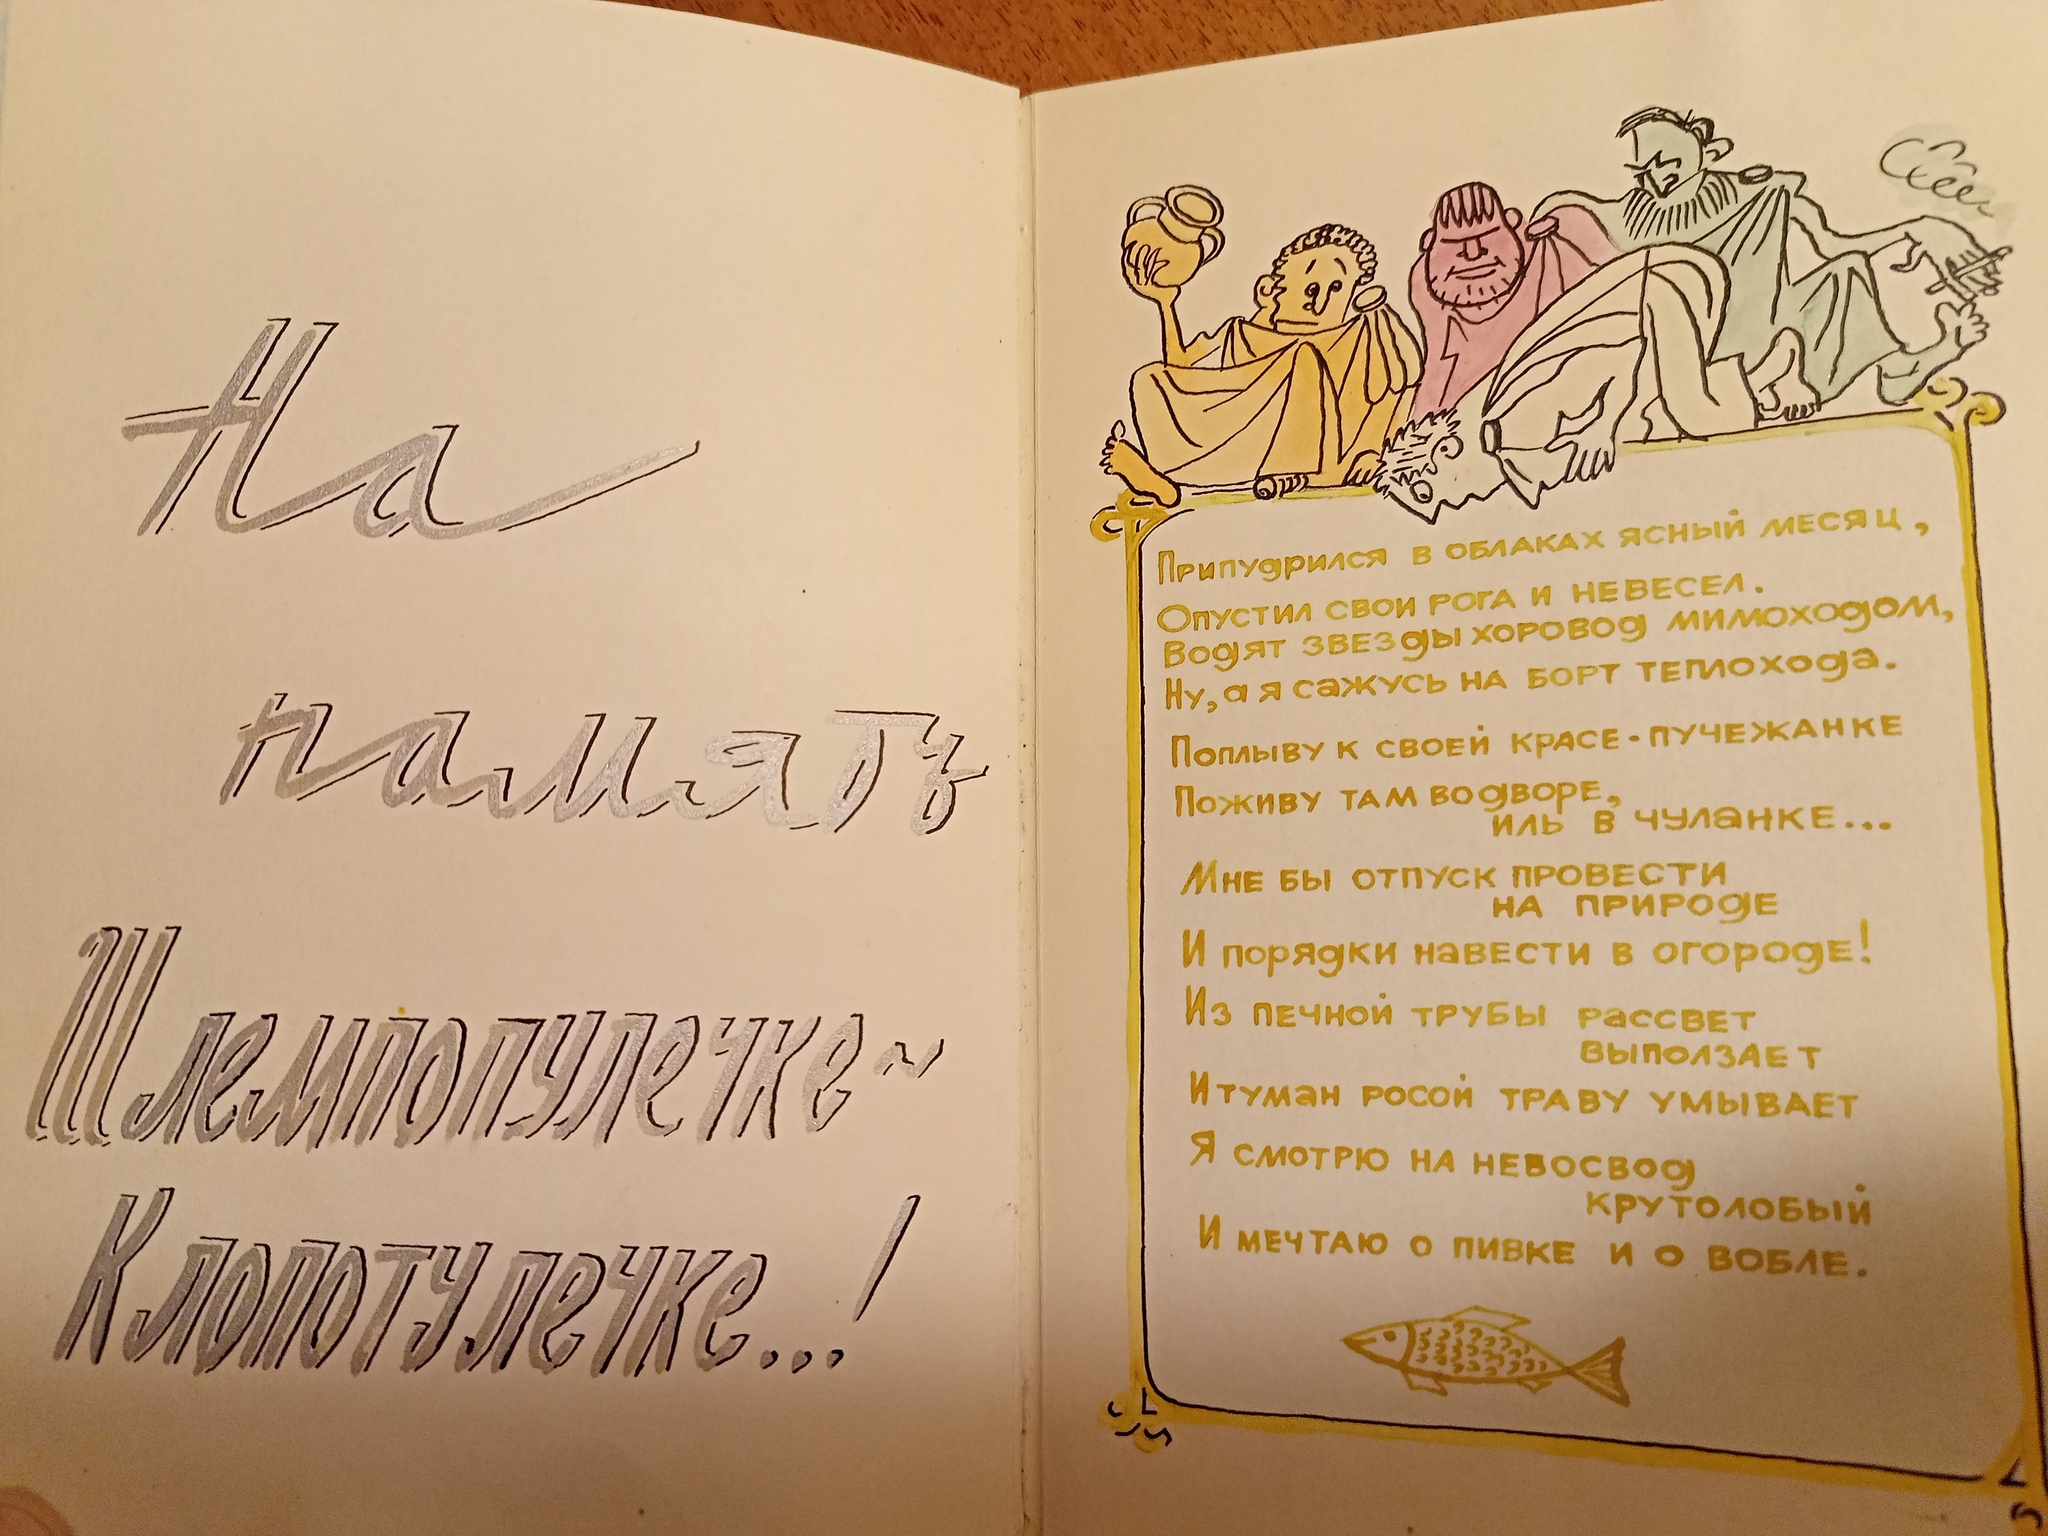 На
память
Шлемпопулечке~
Клопотулечке...!
Припудрился в облаках ясный месяц,
Опустил свои рога и невесел.
Водят звезды хоровод мимоходом,
Ну, а я сажусь на борт теплохода.
Поплыву к своей красе-пучежанке
Поживу там во дворе,
иль в чуланке...
Мне бы отпуск провести
на природе
И порядки навести в огороде!
Из печной трубы рассвет
выползает
И туман росой траву умывает
Я смотрю на небосвод
крутолобый
И мечтаю о пивке и о вобле.